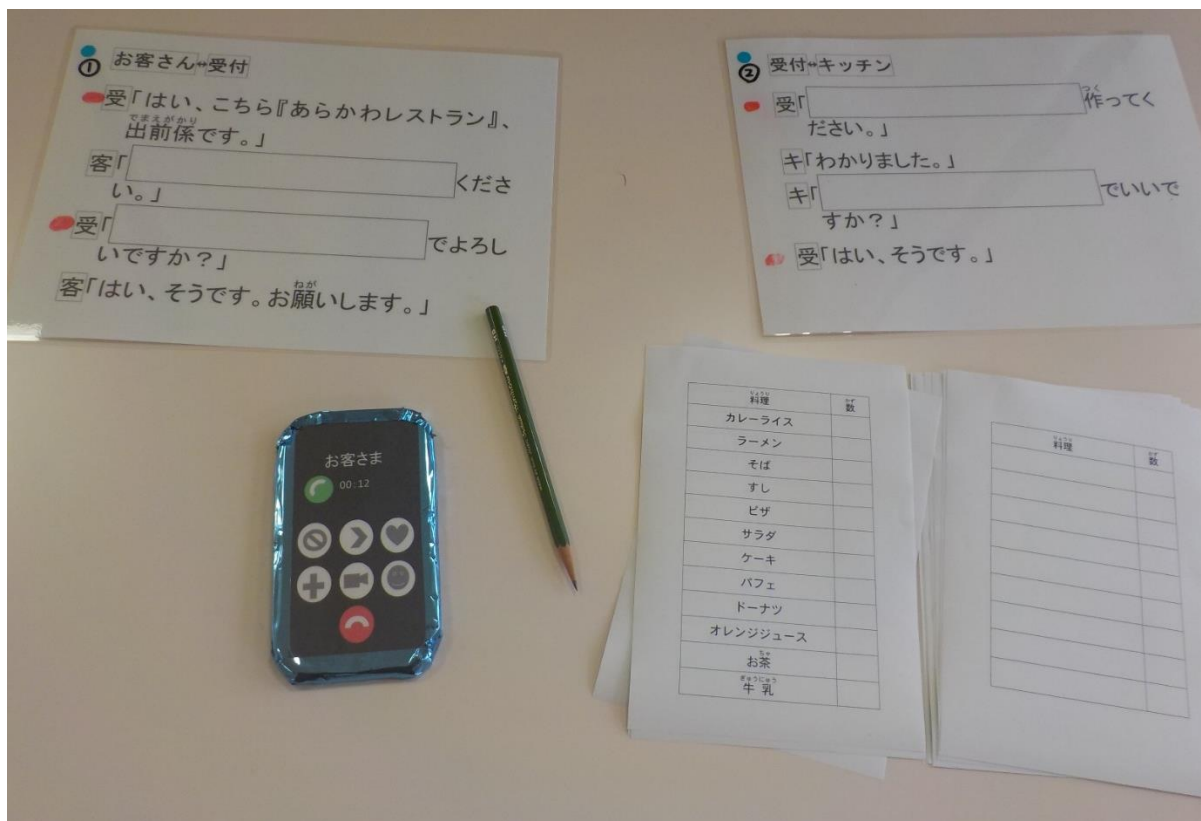 ① お客さん↔受付
受「はい、こちら『あらかわレストラン』、
でまえがかり
出前係です。」
客「くださ
い。」
受「でよろし
いですか？」
ねが
客「はい、そうです。お願いします。」
② 受付↔キッチン
つく
受「作ってく
ださい。」
キ「わかりました。」
キ「でいいで
すか？」
受「はい、そうです。」
お客さま
00:12
りょうり かず
料理 数
カレーライス
ラーメン
そば
すし
ピザ
サラダ
ケーキ
パフェ
ドーナツ
オレンジジュース
ちゃ
お茶
ぎゅうにゅう
牛乳
りょうり かず
料理 数